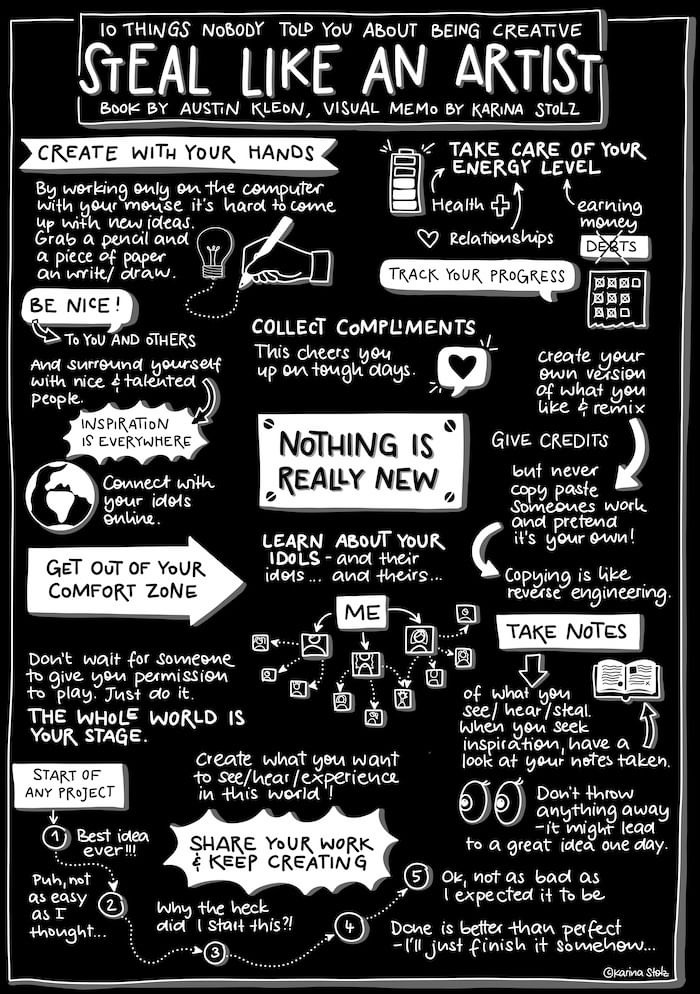 10 THINGS NOBODY TOLD YOU ABOUT BEING CREATIVE
STEAL LIKE AN ARTIST
BOOK BY AUSTIN KLEON, VISUAL MEMO BY KARINA STOLZ
CREATE WITH YOUR HANDS
By working only on the computer
with your mouse it's hard to come
up with new ideas.
Grab a pencil and
a piece of paper
an write/ draw.
TAKE CARE OF YOUR
ENERGY LEVEL
Health
Relationships
earning
money
DEBTS
TRACK YOUR PROGRESS
BE NICE!
TO YOU AND OTHERS
And surround yourself
with nice & talented
people.
INSPIRATION
IS EVERYWHERE
Connect with
your idols
online.
COLLECT COMPLIMENTS
This cheers you
up on tough days.
create your
own version
of what you
like & remix
GIVE CREDITS
but never
copy paste
someones work
and pretend
it's your own!
Copying is like
reverse engineering.
NOTHING IS
REALLY NEW
GET OUT OF YOUR
COMFORT ZONE
LEARN ABOUT YOUR
IDOLS - and their
idols... and theirs...
ME
Don't wait for someone
to give you permission
to play. Just do it.
THE WHOLE WORLD IS
YOUR STAGE.
TAKE NOTES
of what you
see/ hear/steal.
When you seek
inspiration, have a
look at your notes taken.
Don't throw
anything away
-it might lead
to a great idea one day.
Create what you want
to see/hear/experience
in this world!
SHARE YOUR WORK
& KEEP CREATING
START OF
ANY PROJECT
1 Best idea
ever!!!
Puh, not
as easy
as I
thought...
2
Why the heck
did I start this?!
3
4
Done is better than perfect
-I'll just finish it somehow...
5 Ok, not as bad as
I expected it to be
©Karina Stolz